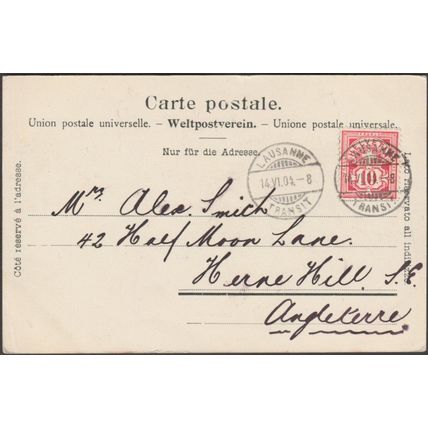 Carte postale.
Union postale universelle. – Weltpostverein. – Unione postale universale.
Nur für die Adresse.
Côté réservé à l'adresse.
Lato riservato all'indirizzo.
LAUSANNE
14.VI.04.–8
TRANSIT
LAUSANNE
14.VI.04.–8
TRANSIT
10
Mrs. Alex. Smith
42 Half Moon Lane.
Herne Hill. S.E.
Angleterre.